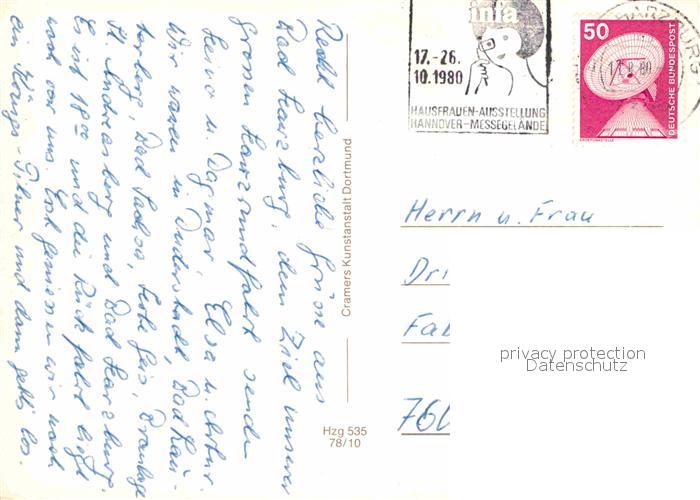 Recht herzliche Grüsse aus
Bad Harzburg, dem Ziel unserer
grossen Harzrundfahrt senden
Heino u. Dagmar, Elsa u. Artur.
Wir waren in Duderstadt, Bad Lau-
terberg, Bad Sachsa, Braunlage
St. Andreasberg und Bad Harzburg.
Es ist 18 00 und die Rückfahrt liegt
noch vor uns. Erst geniessen wir noch
ein Königs-Pilsner und dann geht's los.
Cramers Kunstanstalt Dortmund
Hzg 535
78/10
infa
17.-26.
10.1980
HAUSFRAUEN-AUSSTELLUNG
HANNOVER-MESSEGELÄNDE
50
DEUTSCHE BUNDESPOST
ERDEFUNKSTELLE
Herrn u. Frau
Dri
Fab
privacy protection
Datenschutz
76